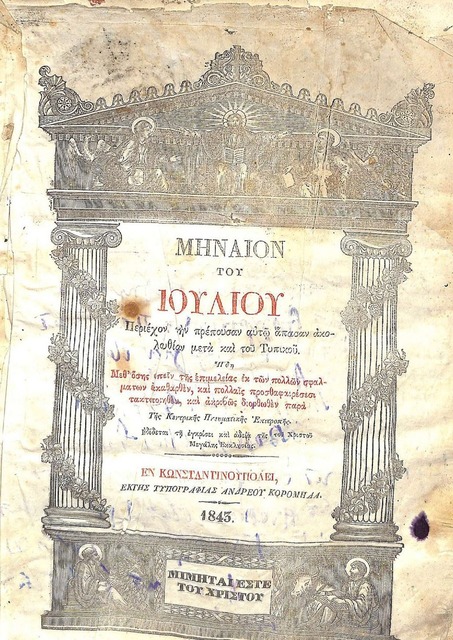 ΜΗΝΑΙΟΝ
ΤΟΥ
ΙΟΥΛΙΟΥ
Περιέχον τὴν πρέπουσαν αὐτῷ ἅπασαν ἀκο-
λουθίαν μετὰ καὶ τοῦ Τυπικοῦ.
Ἤδη
Μεθ' ὅσης εἰπεῖν τῆς ἐπιμελείας ἐκ τῶν πολλῶν σφαλ-
μάτων ἐκκαθαρθὲν, καὶ πολλαῖς προσθαφαιρέσεσι
τακτοποιηθὲν, καὶ ἀκριβῶς διορθωθὲν παρὰ
Τῆς Κεντρικῆς Πνευματικῆς Ἐπιτροπῆς.
Ἐκδίδεται τῇ ἐγκρίσει καὶ ἀδείᾳ τῆς τοῦ Χριστοῦ
Μεγάλης Ἐκκλησίας.
ΕΝ ΚΩΝΣΤΑΝΤΙΝΟΥΠΟΛΕΙ,
ΕΚ ΤΗΣ ΤΥΠΟΓΡΑΦΙΑΣ ΑΝΔΡΕΟΥ ΚΟΡΟΜΗΛΑ.
1843.
ΜΙΜΗΤΑΙ ΕΣΤΕ
ΤΟΥ ΧΡΙΣΤΟΥ